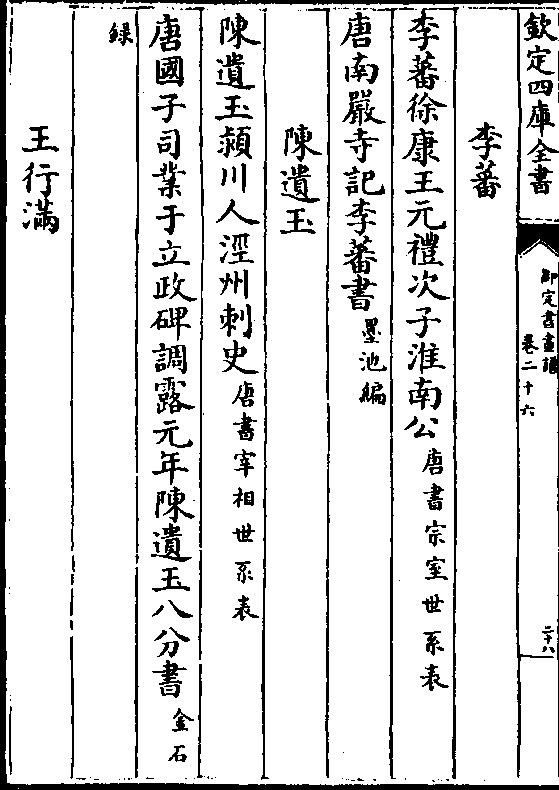 欽定四庫全書
御定書畫譜
卷二十六
二十八
李蕃
李蕃徐康王元禮次子淮南公唐書宗室世系表
唐南巖寺記李蕃書墨池編
陳遺玉
陳遺玉潁川人涇州刺史唐書宰相世系表
唐國子司業于立政碑調露元年陳遺玉八分書金石
錄
王行滿